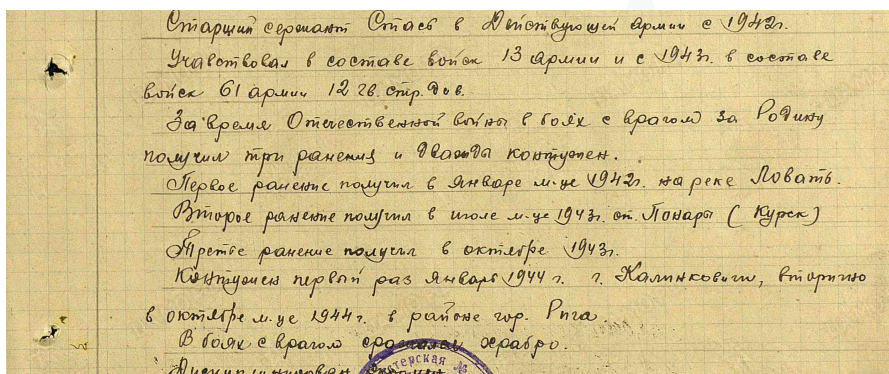 Старший сержант Стась в Действующей армии с 1942г.
Участвовал в составе войск 13 армии и с 1943г. в составе
войск 61 армии 12 гв. стр. див.
За время Отечественной войны в боях с врагом за Родину
получил три ранения и дважды контужен.
Первое ранение получил в январе м-це 1942г. на реке Ловать.
Второе ранение получил в июле м-це 1943г. ст. Понары (Курск)
Третье ранение получил в октябре 1943г.
Контужен первый раз январь 1944 г. г. Калинковичи, вторично
в октябре м-це 1944г. в районе гор. Рига
В боях с врагом сражался храбро.
Дисциплинирован